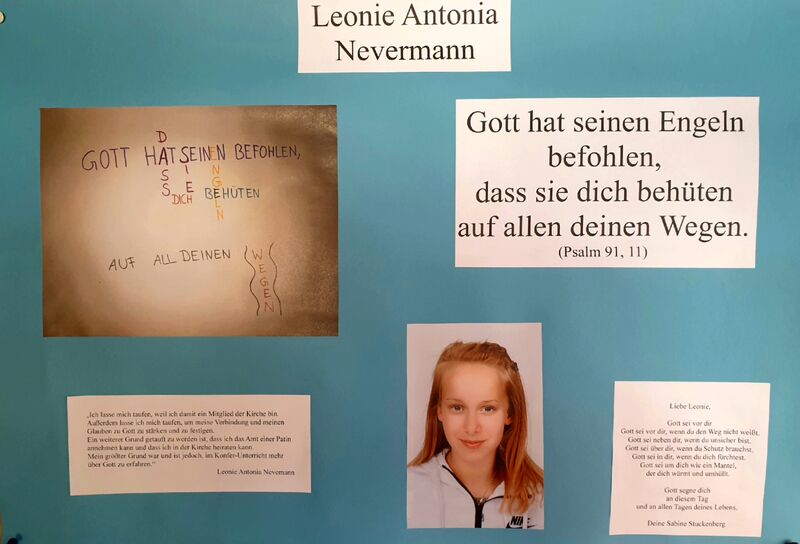 Leonie Antonia
Nevermann
GOTT HAT SEINEN BEFOHLEN,
DASS
SIE
ENGELN
DICH BEHÜTEN
AUF ALL DEINEN
WEGEN
Gott hat seinen Engeln
befohlen,
dass sie dich behüten
auf allen deinen Wegen.
(Psalm 91, 11)
„Ich lasse mich taufen, weil ich damit ein Mitglied der Kirche bin.
Außerdem lasse ich mich taufen, um meine Verbindung und meinen
Glauben zu Gott zu stärken und zu festigen.
Ein weiterer Grund getauft zu werden ist, dass ich das Amt einer Patin
annehmen kann und dass ich in der Kirche heiraten kann.
Mein größter Grund war und ist jedoch, im Konfer-Unterricht mehr
über Gott zu erfahren.“
Leonie Antonia Nevemann
NIKE
Liebe Leonie,
Gott sei vor dir
Gott sei vor dir, wenn du den Weg nicht weißt.
Gott sei neben dir, wenn du unsicher bist.
Gott sei über dir, wenn du Schutz brauchst.
Gott sei in dir, wenn du dich fürchtest.
Gott sei um dich wie ein Mantel,
der dich wärmt und umhüllt.
Gott segne dich
an diesem Tag
und an allen Tagen deines Lebens,
Deine Sabine Stuckenberg